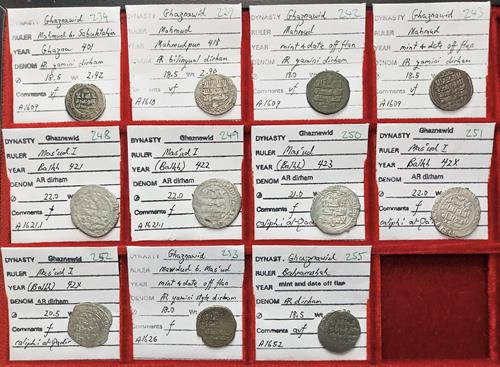 DYNASTY Ghaznavid 234
RULER Mahmud b. Sabuktakin
YEAR Ghaznav 401
DENOM AR yamini dirham
18.5 Wt 2.92
Comments vf
A1609
DYNASTY Ghaznavid 239
RULER Mahmud
YEAR Mahmudpur 418
DENOM AR bilingual dirham
18.5 Wt 2.90
Comments vf
A1610
DYNASTY Ghaznavid 242
RULER Mahmud
YEAR mint & date off flan
DENOM AR yamini dirham
18.0 Wt
Comments vf
A1609
DYNASTY Ghaznavid 243
RULER Mahmud
YEAR mint & date off flan
DENOM AR yamini dirham
18.5 Wt
Comments vf
A1609
DYNASTY Ghaznewid 248
RULER Mas'ud I
YEAR Balkh 421
DENOM AR dirham
22.0 Wt
Comments f
A1621.1
DYNASTY Ghaznewid 249
RULER Mas'ud I
YEAR (Balkh) 422
DENOM AR dirham
22.0 Wt
Comments f
A1621.1
DYNASTY Ghaznewid 250
RULER Mas'ud
YEAR (Balkh) 423
DENOM AR dirham
21.0 Wt
Comments f
caliph: al-
DYNASTY Ghaznewid 251
RULER Mas'ud I
YEAR Balkh 42X
DENOM AR dirham
22.0 Wt
Comments f
caliph: al-
DYNASTY Ghaznewid 252
RULER Mas'ud I
YEAR (Balkh) 42X
DENOM AR dirham
20.5 Wt
Comments f
caliph: al-Qadir
DYNASTY Ghaznavid 253
RULER Mawdud b. Mas'ud
YEAR mint & date off flan
DENOM AR yamini style dirham
18.0 Wt
Comments f
A1626
DYNASTY. Ghaznavid 255
RULER Bahramshah
mint and date off flan
DENOM AR dirham
18.5 Wt
Comments avf
A1652